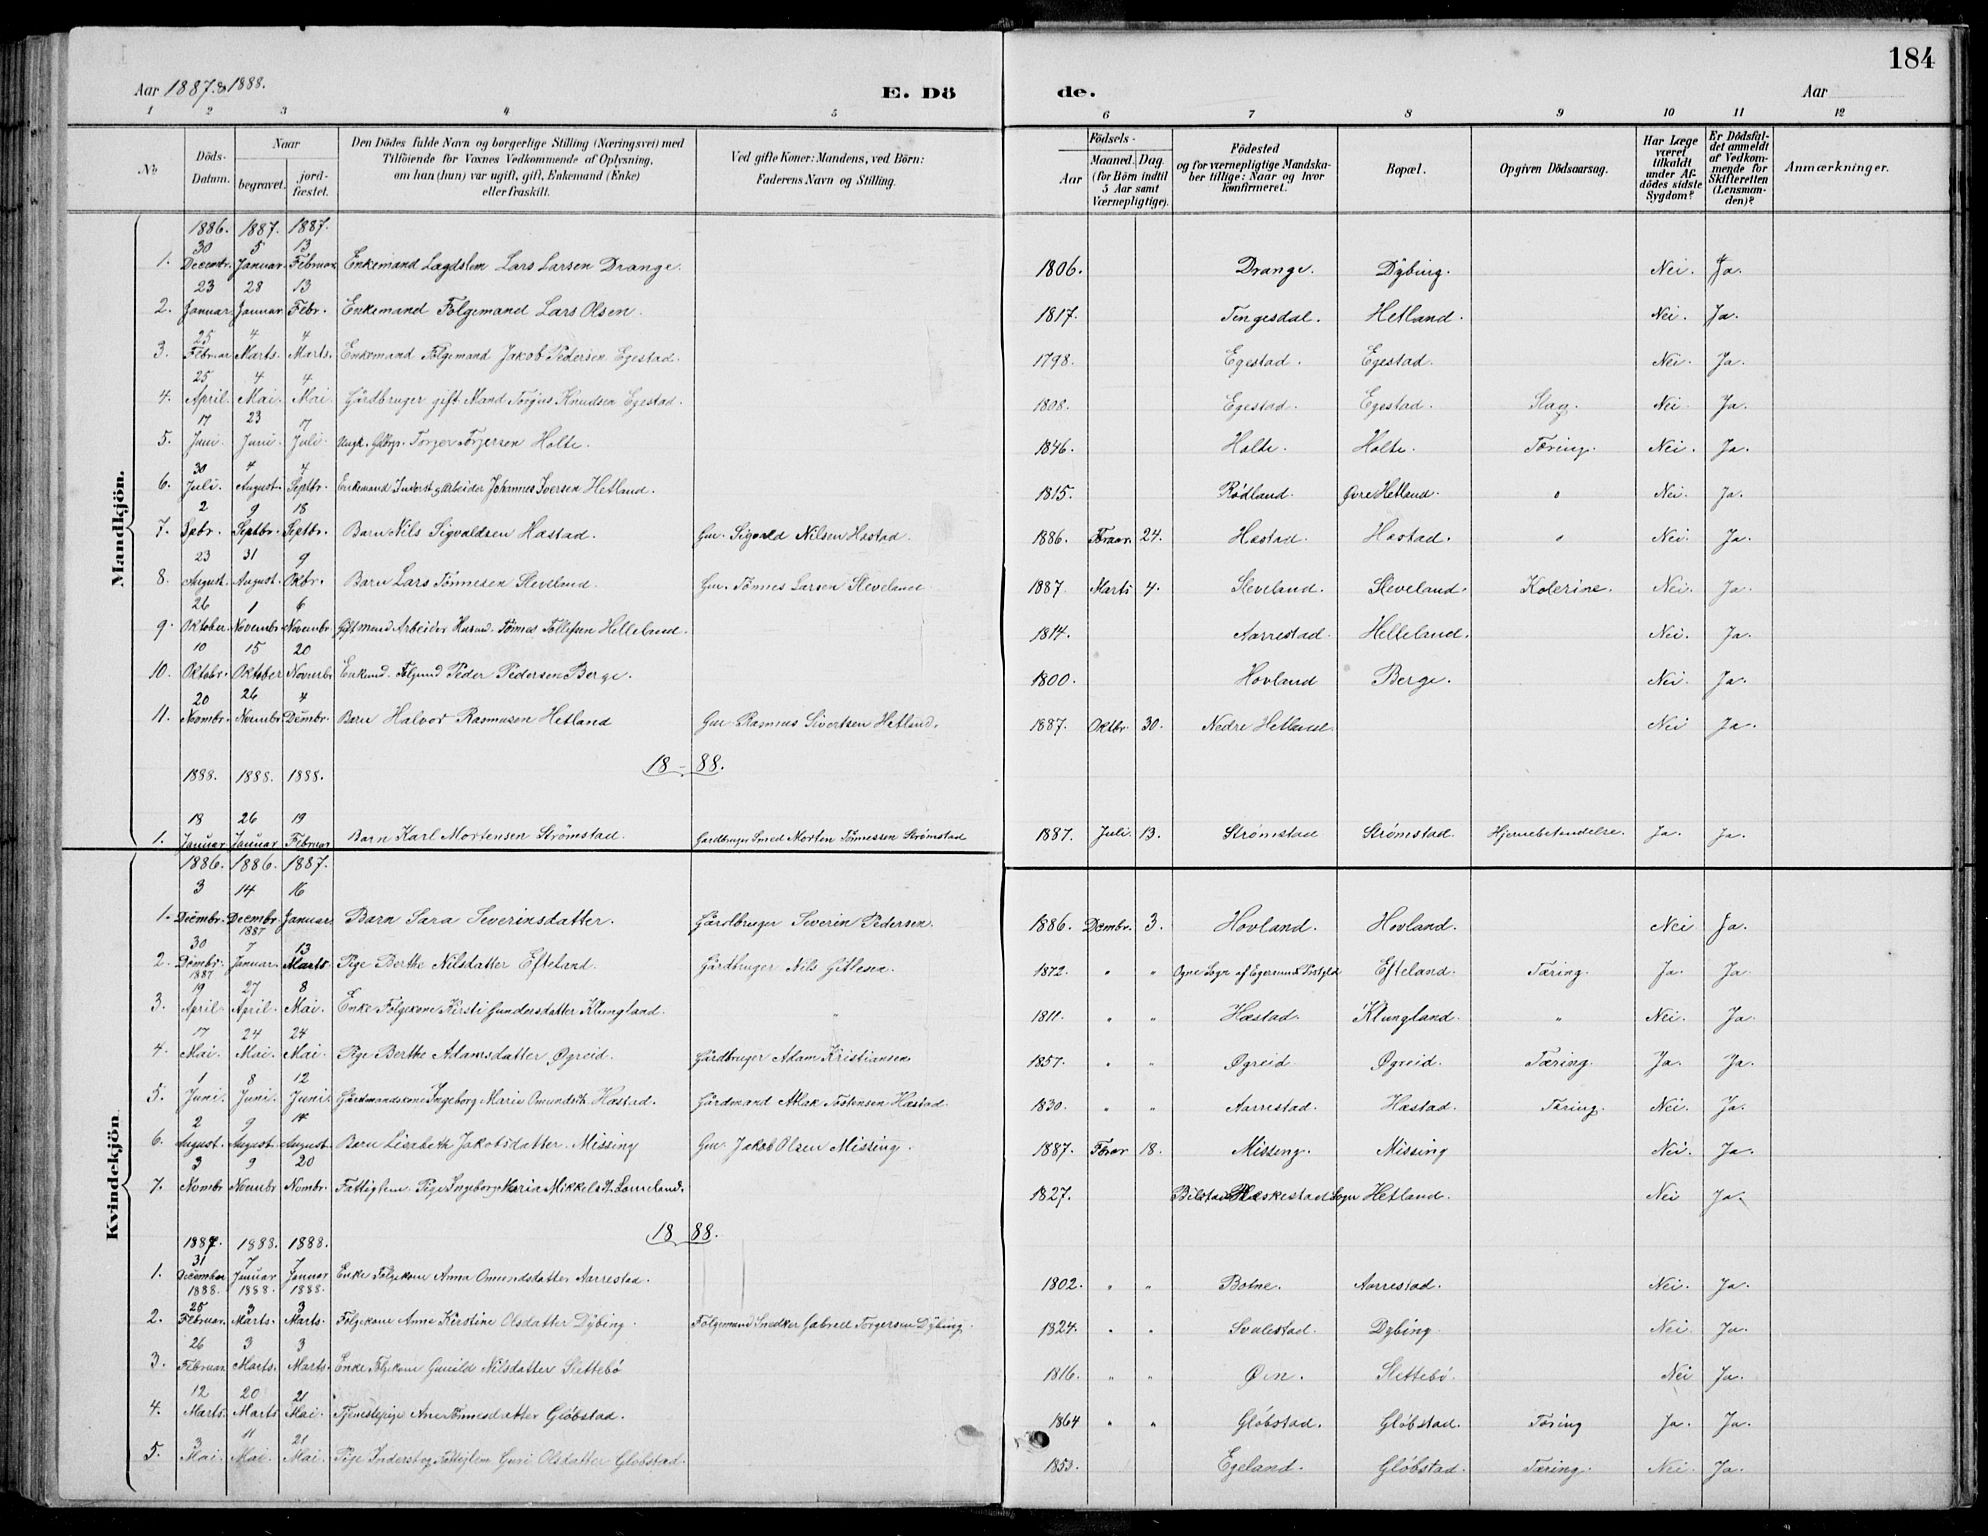 184
Aar 1887 & 1888.
E. Dö
de.
Aar
1 2 3 4 5 6 7 8 9 10 11 12
No
Döds-Datum.
Naar
begravet.
jord-fæstet.
Den Dödes fulde Navn og borgerlige Stilling (Næringsvei) med
Tilföiende for Voxnes Vedkommende af Oplysning,
om han (hun) var ugift, gift, Enkemand (Enke)
eller fraskilt.
Ved gifte Koner: Mandens, ved Börn:
Faderens Navn og Stilling.
Födsels-
Aar
Maaned. Dag.
(for Börn indtil
5 Aar samt
Værnepligtige).
Födested
og for værnepligtige Mandska-
ber tillige: Naar og hvor
konfirmeret.
Bopæl.
Opgiven Dödsaarsag.
Har Læge
været
tilkaldt
under Af-
dödes sidste
Sygdom?
Er Dödsfal-
det anmeldt
af Vedkom-
mende for
Skifteretten
(Lensman-
den)?
Anmærkninger.
Mandkjön.
1886. 1887. 1887.
30 5 13
1. Decembr. Januar. Februar. Enkemand Lægdslem Lars Larsen Drange. 1806. Drange. Dybing. Nei. Ja.
23 28 13
2. Januar. Januar Febr. Enkemand Folgemand Lars Olsen. 1817. Tengesdal. Hetland. Nei. Ja.
25 4 4
3. Februar Marts. Marts. Enkemand Folgemand Jakob Pedersen Egestad. 1798. Egestad. Egestad. Nei. Ja.
25 4 4
4. April. Mai. Mai. Gårdbruger gift Mand Torgius Knudsen Egestad. 1808. Egestad. Egestad. Slag. Nei. Ja.
17 23 7
5. Juni. Juni. Juli. Ungk. Gdbrgr. Torjer Torjersen Holte. 1846. Holte. Holte. Tæring. Nei. Ja.
30 4 4
6. Juli. August. Septbr. Enkemand Inderst og Arbeider Johannes Iversen Hetland. 1815. Rødland. Øvre Hetland. " Nei. Ja.
2 9 18
7. Spbr. Septbr. Septbr. Barn Nils Sigvaldsen Hæstad. Gm. Sigvald Nilsen Hæstad. 1886. Februar. 24. Hæstad. Hæstad. " Nei. Ja.
23 31 9
8. August. August. Oktbr. Barn Lars Tönnesen Sleveland. Gm. Tönnes Larsen Sleveland. 1887. Marts 4. Sleveland. Sleveland. Kolerine. Nei. Ja.
26 1 6
9. Oktober. Novembr. Novembr. Giftmand Arbeider Husmd. Tönnes Tollefsen Helleland. 1814. Aarrestad. Helleland. Nei. Ja.
10 15 20
10. Oktobr. Oktober Novembr. Enkemd. Folgemd Peder Pedersen Berge. 1800. Hovland Berge. Nei. Ja.
20 26 4
11. Novmbr. Novmbr. Dembr. Barn Halvor Rasmusen Hetland Gm. Rasmus Sivertsen Hetland. 1887. Oktbr. 30. Nedre Hetland. Nei Ja.
18 - 88.
1888. 1888. 1888.
18 26 19
1. Januar Januar Februar Barn Karl Mortensen Strömstad. Gardbruger Smed Morten Tönnessen Strömstad 1887. Juli. 13. Strømstad Strømstad. Hjernebetændelse. Ja. Ja.
Kvindekjön
1886. 1886. 1887.
3 14 16
1. Decembr. Decembr Januar. Barn Sara Severinsdatter. Gårdbruger Severin Pedersen. 1886. Dembr. 3. Hovland. Hovland. Nei Ja.
1887
30 7 13
2. Dembr. Januar. Marts. Pige Berthe Nilsdatter Efteland. Gårdbruger Nils Gitlesen. 1872. " " Ogne Sogn af Egersunds Præstgjld Efteland. Tæring. Ja. Ja.
1887
19 27 8
3. April. April. Mai. Enke Folgekone Kirsti Gundersdatter Klungland. " 1811. " " Hæstad. Klungland. " Nei. Ja.
17 24 24
4. Mai. Mai. Mai. Pige Berthe Adamsdatter Øgreid. Gårdbruger Adam Kristiansen 1857. " " Øgreid Øgreid. Tæring. Ja. Ja.
1 8 12
5. Juni. Juni. Juni. Gårdmandskone Ingeborg Marie Omundsdt. Hæstad. Gårdmand Atlak Tostensen Hæstad. 1830. " " Aarrestad. Hæstad. Tæring. Nei. Ja.
2 9 14
6. August. August. August. Barn Lisabeth Jakobsdatter. Missing Gm. Jakob Olsen Missing. 1887. Febrar 18. Missing. Missing Nei. Ja.
3 9 20
7. Nombr. Novmbr Nombr. Fattiglem Pige Ingeborg Maria Mikkelsdt. Lomeland. 1827. Bilstad Hæskestad Sogn Hetland. Nei Ja.
18 88.
1887. 1888. 1888.
31 7 7
1. December Januar Januar Enke Folgekone Anna Omundsdatter Aarrestad. 1802. " " Botne. Aarrestad. Nei. Ja.
1888. 1888. 1888.
25 3 3
2. Februar. Marts. Marts. Folgekone Anne Kirstine Olsdatter Dybing. Folgemand Snedker Gabriel Torgersen Dybing. 1824. " " Svalestad. Dybing. Nei. Ja.
26 3 3
3. Februar. Marts. Marts. Enke Folgekone Gunild Nilsdatter Slettebö 1816. " " Øen. Slettebö. Nei Ja.
12 20 21
4. Marts. Marts Mai. Tjenestepige Ane Tönnesdatter Glöbstad. 1864 " " Glöbstad. Glöbstad. Tæring Ja. Ja.
3 11 21
5. Mai. Mai. Mai. Pige Inderst og Fattiglem Guri Olsdatter Globstad. 1853. Egeland. Glöbstad. Tæring. Nei. Ja.